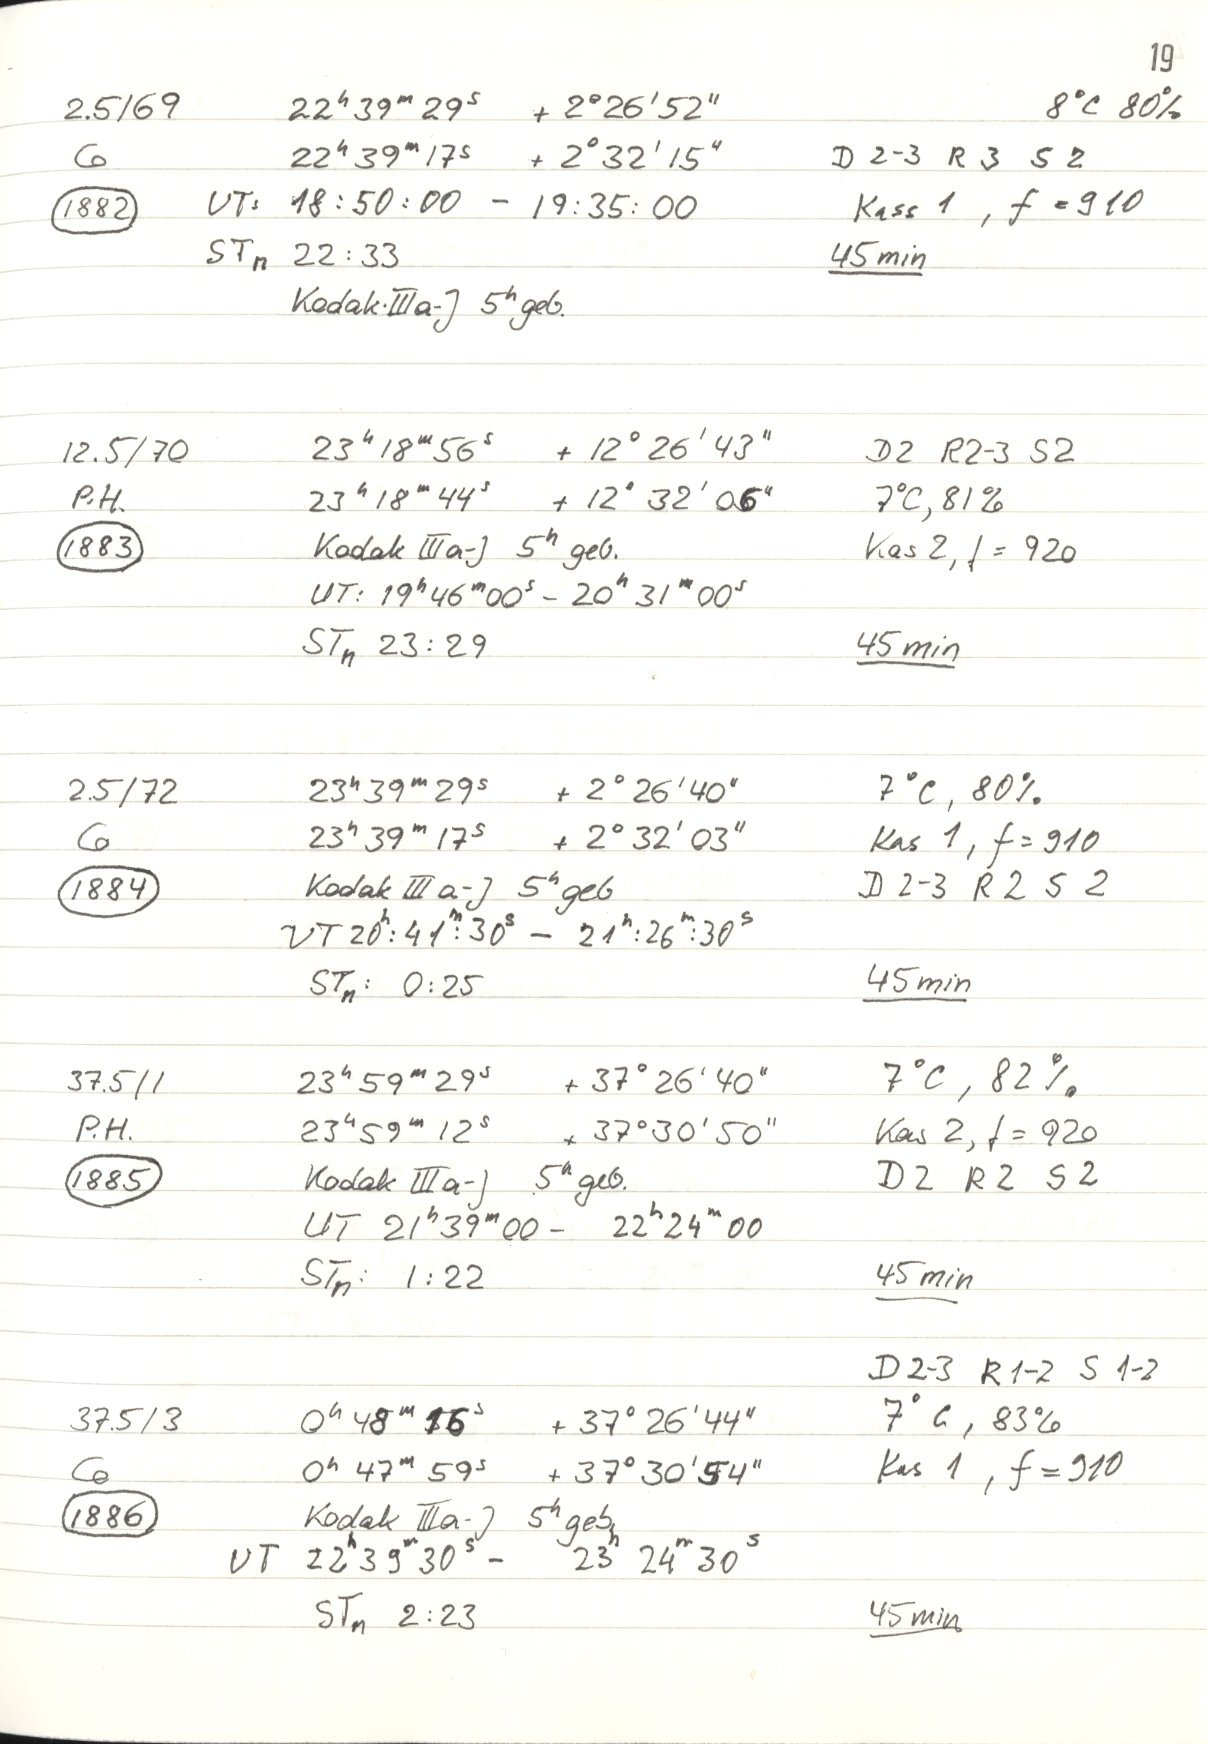 19
2.5/69 22ʰ39ᵐ29ˢ + 2°26'52" 8°C 80%
Co 22ʰ39ᵐ17ˢ + 2°32'15" D 2-3 R 3 S 2
1882 UT: 18:50:00 - 19:35:00 Kass 1, f = 910
STn 22:33 45 min
Kodak·IIIa-J 5ʰ geb.
12.5/70 23ʰ18ᵐ56ˢ + 12°26'43" D2 R2-3 S2
P.H. 23ʰ18ᵐ44ˢ + 12°32'06" 7°C, 81%
1883 Kodak IIIa-J 5ʰ geb. Kas 2, f = 920
UT: 19ʰ46ᵐ00ˢ - 20ʰ31ᵐ00ˢ
STn 23:29 45 min
2.5/72 23ʰ39ᵐ29ˢ + 2°26'40" 7°C, 80%
Co 23ʰ39ᵐ17ˢ + 2°32'03" Kas 1, f = 910
1884 Kodak IIIa-J 5ʰ geb D 2-3 R 2 S 2
UT 20ʰ:41ᵐ:30ˢ - 21ʰ:26ᵐ:30ˢ
STn: 0:25 45 min
37.5/1 23ʰ59ᵐ29ˢ + 37°26'40" 7°C, 82%
P.H. 23ʰ59ᵐ12ˢ + 37°30'50" Kas 2, f = 920
1885 Kodak IIIa-J 5ʰ geb. D2 R2 S2
UT 21ʰ39ᵐ00 - 22ʰ24ᵐ00
STn: 1:22 45 min
D 2-3 R 1-2 S 1-2
37.5/3 0ʰ48ᵐ16ˢ + 37°26'44" 7°C, 83%
Co 0ʰ47ᵐ59ˢ + 37°30'54" Kas 1, f = 910
1886 Kodak IIIa-J 5ʰ geb.
UT 22ʰ39ᵐ30ˢ - 23ʰ24ᵐ30ˢ
STn 2:23 45 min